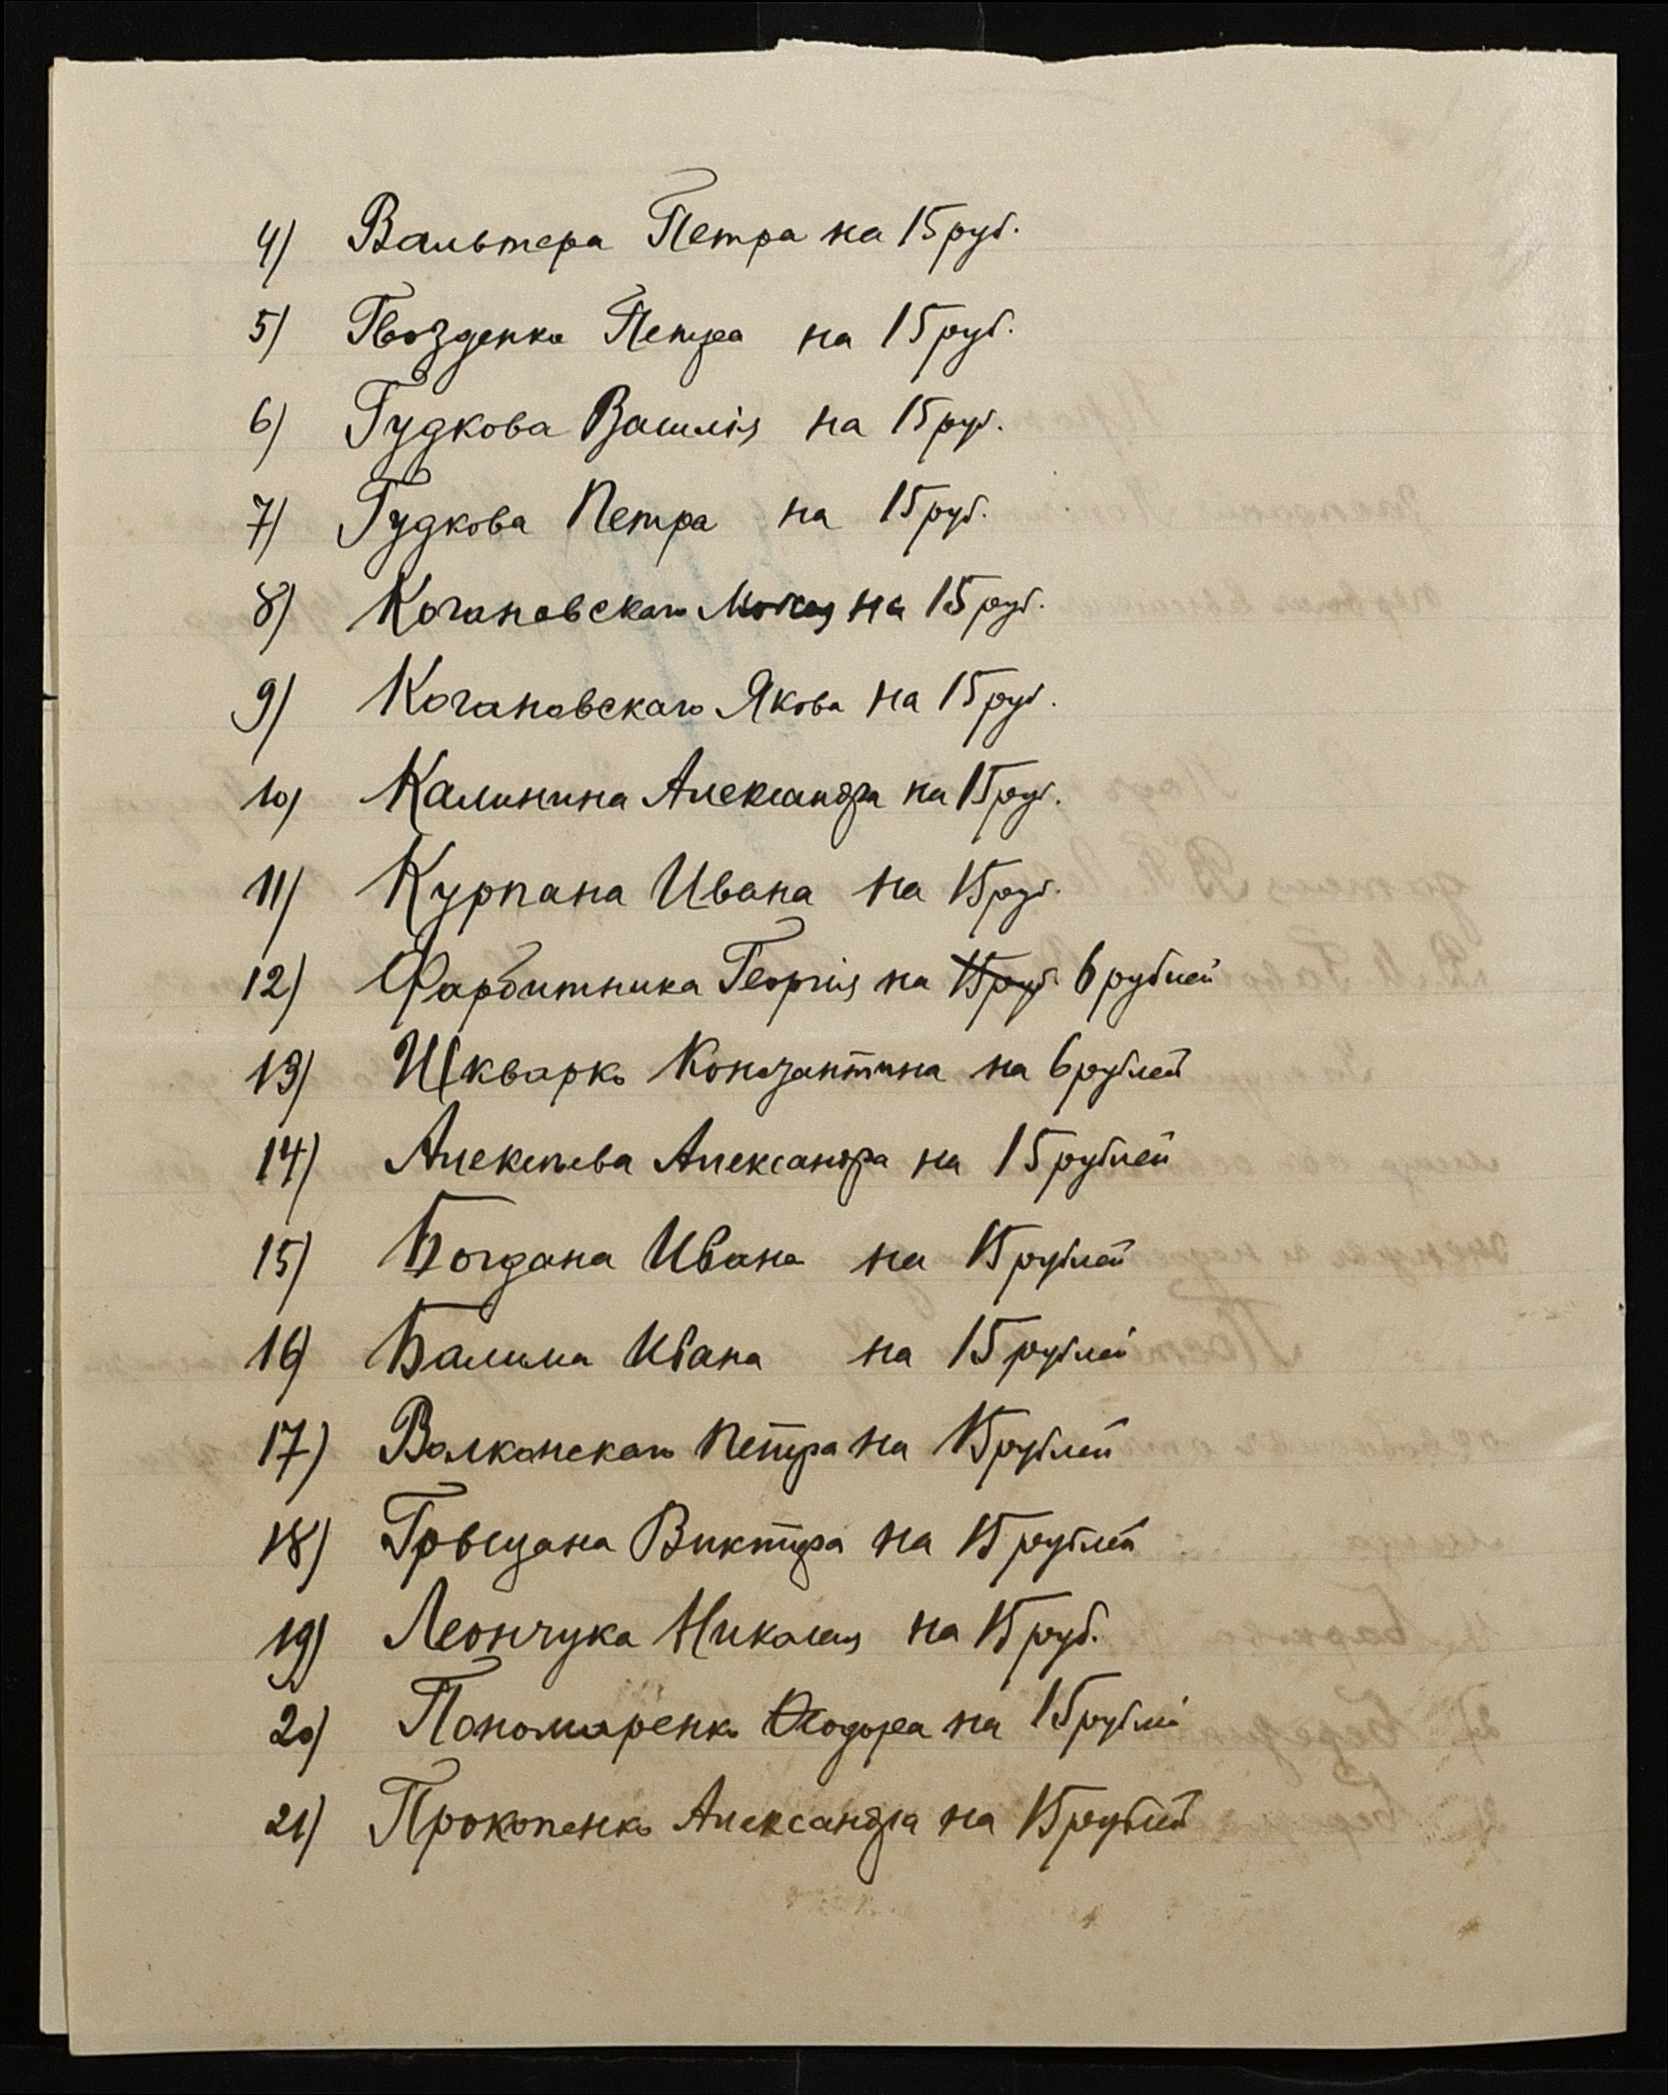 4) Вальтера Петра на 15 руб.
5) Гвозденко Петра на 15 руб.
6) Гудкова Василія на 15 руб.
7) Гудкова Петра на 15 руб.
8) Когановскаго на 15 руб.
9) Когановскаго Якова на 15 руб.
10) Калинина Александра на 15 руб.
11) Курпана Ивана на 15 руб.
12) Фарбитника Георгія на 15 руб. 6 рублей
13) Шкварко Константина на 6 рублей
14) Алексѣева Александра на 15 рублей
15) Богдана Ивана на 15 рублей
16) Балима Ивана на 15 рублей
17) Волконскаго Петра на 15 рублей
18) Виктора на 15 рублей
19) Леончука Николая на 15 руб.
20) Пономаренко Ѳеодора на 15 рублей
21) Прокопенко Александра на 15 рублей